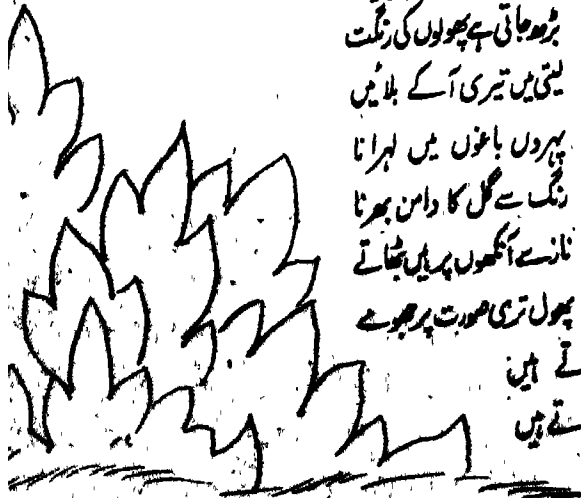 بڑھ جاتی ہے پھولوں کی رنگت
لیتی ہیں تیری آ کے بلائیں
پہروں باغوں میں لہرانا
رنگ سے گل کا دامن بھرنا
ناز سے آنکھوں پر ہیں بٹھاتے
پھول تری صورت پر جھومے
تے ہیں
تے ہیں